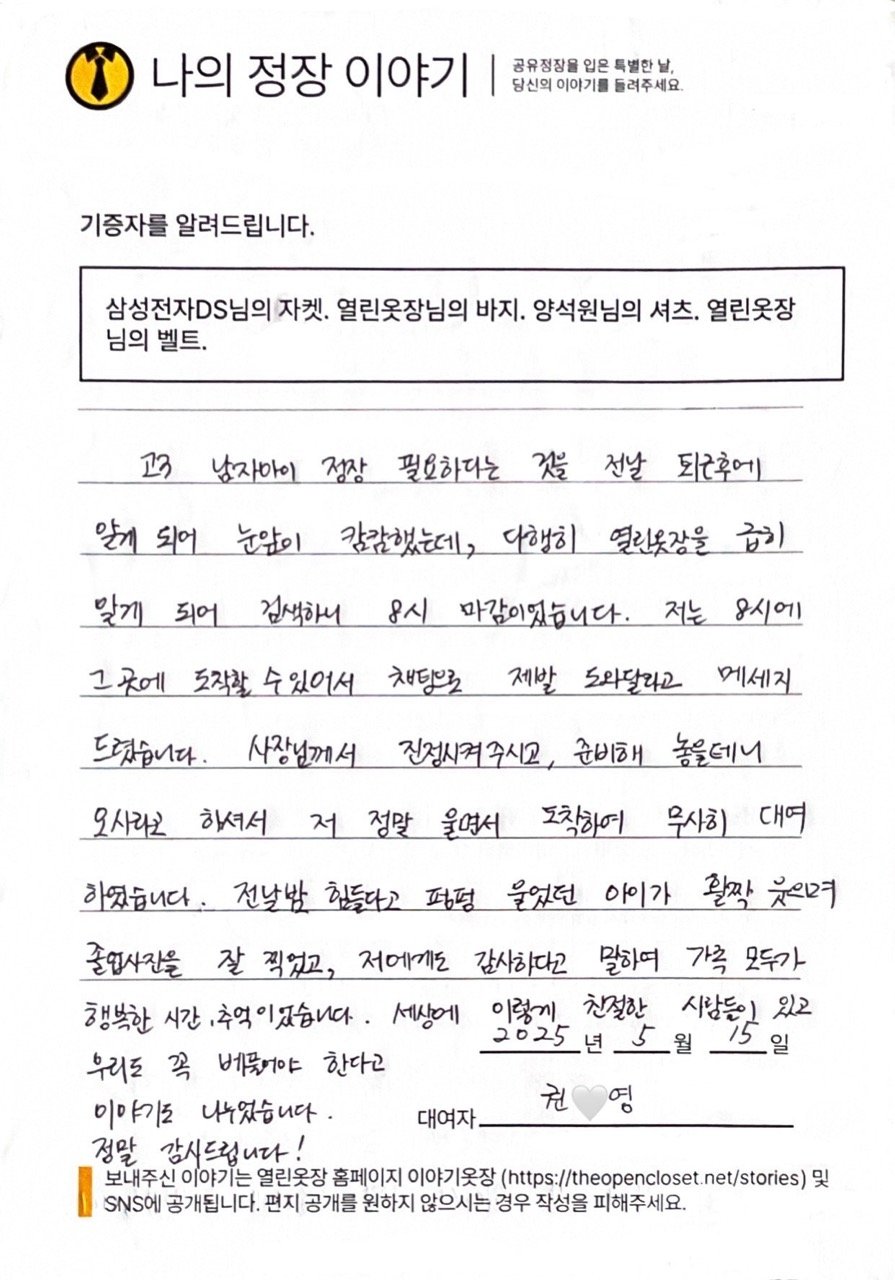 나의 정장 이야기
공유정장을 입은 특별한 날,
당신의 이야기를 들려주세요.
기증자를 알려드립니다.
삼성전자DS님의 자켓. 열린옷장님의 바지. 양석원님의 셔츠. 열린옷장
님의 벨트.
고3 남자아이 정장 필요하다는 것을 전날 퇴근후에
알게 되어 눈앞이 캄캄했는데, 다행히 열린옷장을 급히
알게 되어 검색하니 8시 마감이었습니다. 저는 8시에
그 곳에 도착할 수 있어서 채팅으로 제발 도와달라고 메세지
드렸습니다. 사장님께서 진정시켜 주시고, 준비해 놓을테니
오시라고 하셔서 저 정말 울면서 도착하여 무사히 대여
하였습니다. 전날밤 힘들다고 펑펑 울었던 아이가 활짝 웃으며
졸업사진을 잘 찍었고, 저에게도 감사하다고 말하며 가족 모두가
행복한 시간, 추억이었습니다. 세상에 이렇게 친절한 사람들이 있고
우리도 꼭 베풀어야 한다고
이야기도 나누었습니다.
정말 감사드립니다!
2025년 5월 15일
대여자 권🤍영
보내주신 이야기는 열린옷장 홈페이지 이야기옷장 (https://theopencloset.net/stories) 및
SNS에 공개됩니다. 편지 공개를 원하지 않으시는 경우 작성을 피해주세요.